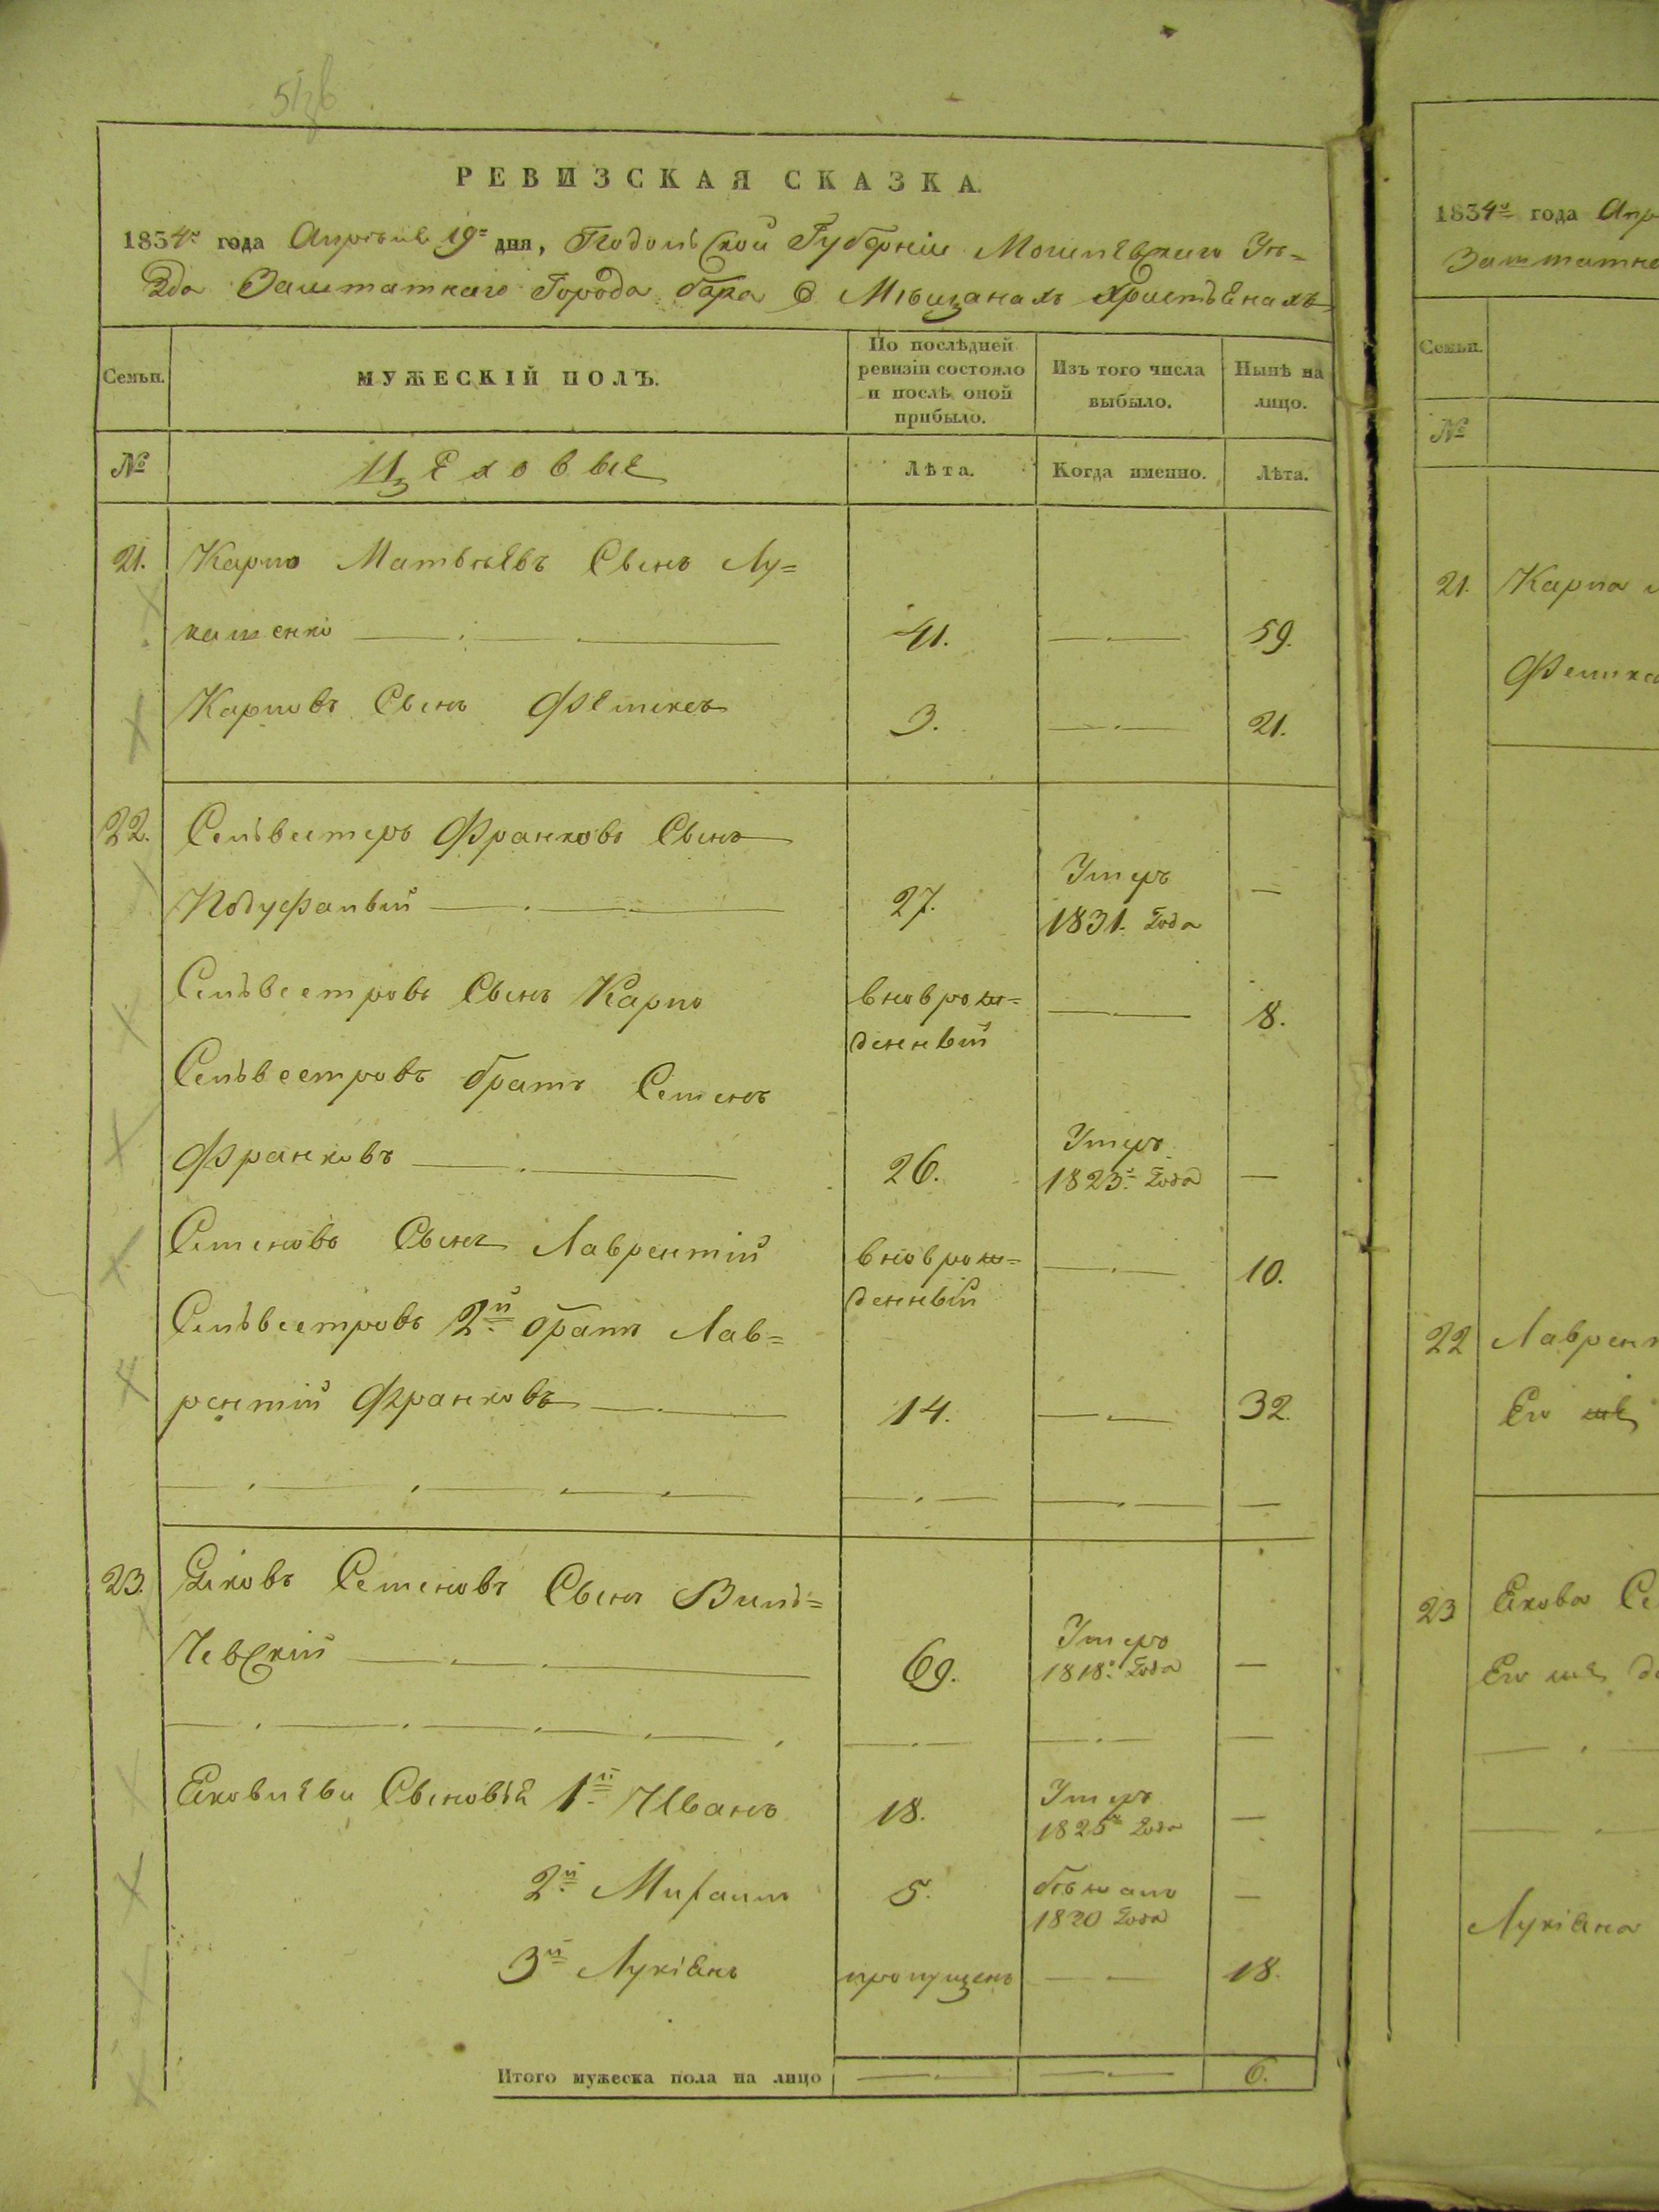 РЕВИЗСКАЯ СКАЗКА.
1834го года Апреля 19го дня, Подольской Губернии Могилевского Уе=
зда Заштатнаго Города Бара О Мещанахъ Христьянахъ
Семьи.
МУЖЕСКІЙ ПОЛЪ.
По послѣдней
ревизіи состояло
и послѣ оной
прибыло.
Изъ того числа
выбыло.
Нынѣ на
лицо.
№
Цеховые
Лѣта.
Когда именно.
Лѣта.
21. Карпо Матвѣевъ Сынъ Лу=
кашенко 41. 59.
Карповъ Сынъ 3. 21.
22. Сельвестеръ Франковъ Сынъ
27. Умеръ 1831. Года
Сельвестровъ Сынъ Карпо вноврож=
денный 8.
Сельвестровъ братъ Семенъ
Франковъ 26. Умеръ 1823го Года
Семеновъ Сынъ Лаврентий вноврож=
денный 10.
Сельвестровъ 2й братъ Лав=
рентий Франковъ 14. 32.
23. Яковъ Семеновъ Сынъ Виль=
чевский 69. Умеръ 1818го Года
Яковлевы Сыновья 1й Иванъ 18. Умеръ 1825го Года
2й Михаилъ 5. бѣжалъ 1820 Года
3й Лукіянъ пропущенъ 18.
Итого мужеска пола на лицо 6.
1834го года
Семьи.
№
21. Карпа
22
Его же
23 Якова
Его же
Лукіяна